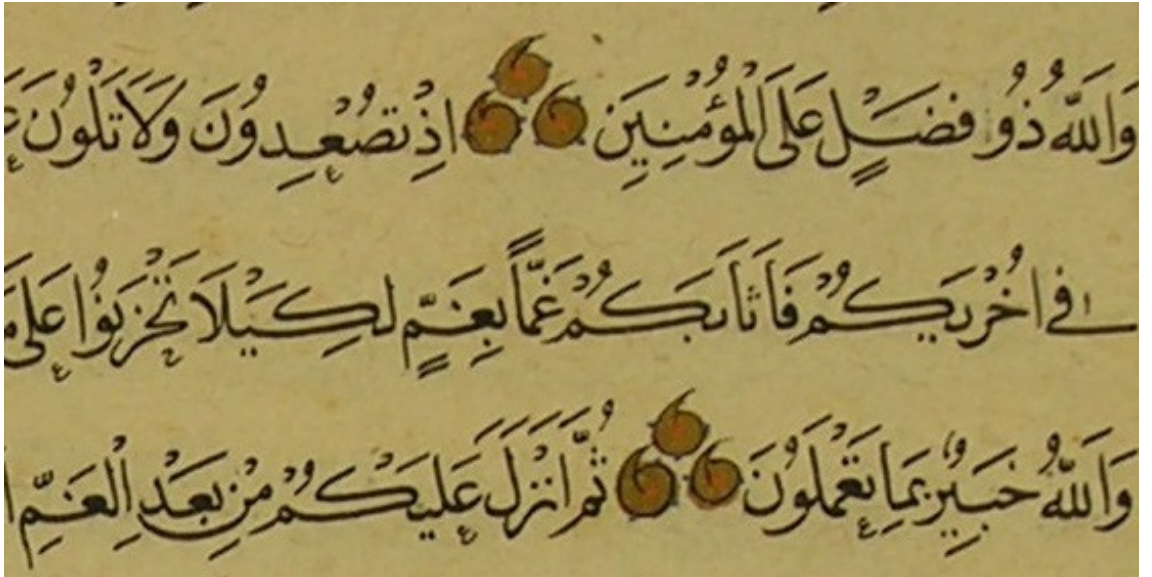 وَاللّٰهُ ذُو فَضْلٍ عَلَى الْمُؤْمِنِينَ اِذْ تُصْعِدُونَ وَلَا تَلْوُنَ
فِي اُخْرٰيكُمْ فَاَثَابَكُمْ غَمًّا بِغَمٍّ لِكَيْلَا تَحْزَنُوا عَلٰى
وَاللّٰهُ خَبِيرٌ بِمَا تَعْمَلُونَ ثُمَّ اَنْزَلَ عَلَيْكُمْ مِنْ بَعْدِ الْغَمِّ